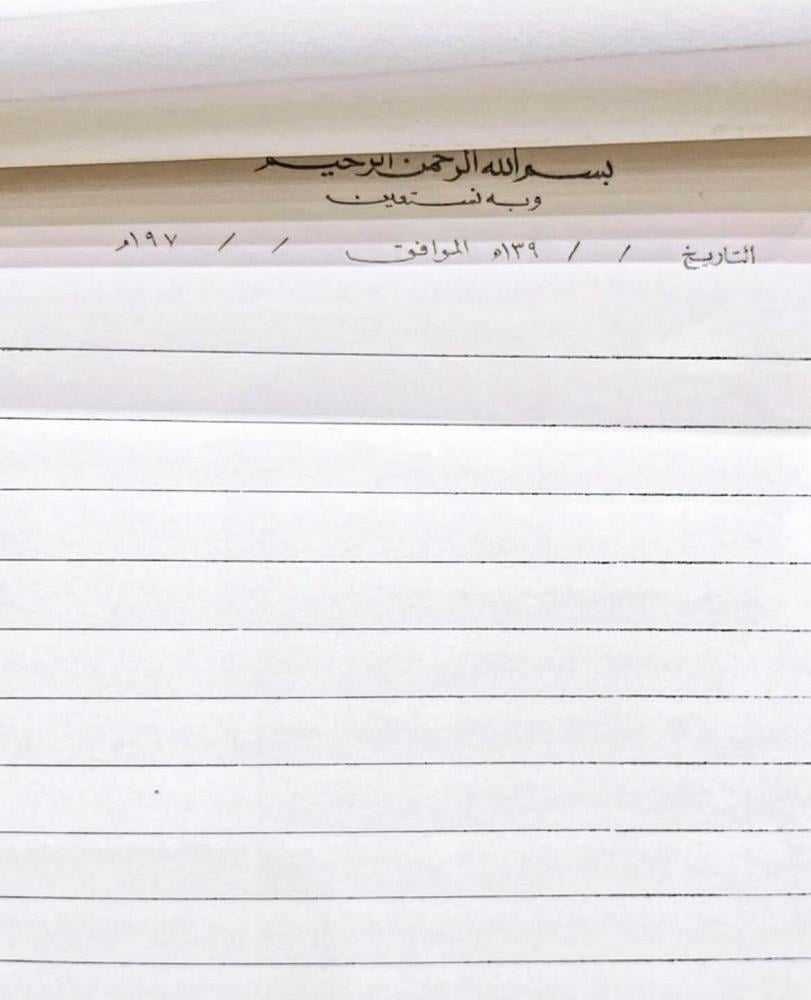 بسم الله الرحمن الرحيم
وبه نستعين
التاريخ / / ١٣٩ه الموافق / / ١٩٧م